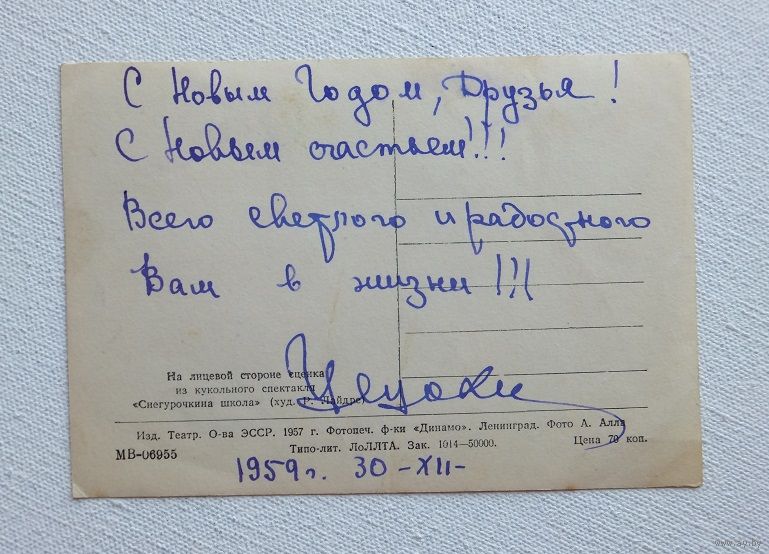 С Новым Годом, Друзья!
С Новым счастьем!!!
Всего светлого и радостного
Вам в жизни!!!
На лицевой стороне сценка
из кукольного спектакля
«Снегурочкина школа» (худ. Р. Лайдре)
Изд. Театр. О-ва ЭССР. 1957 г. Фотопеч. ф-ки «Динамо». Ленинград. Фото А. Алла
МВ-06955
Типо-лит. ЛоЛЛТА. Зак. 1014—50000.
Цена 70 коп.
1959 г. 30 -XII-